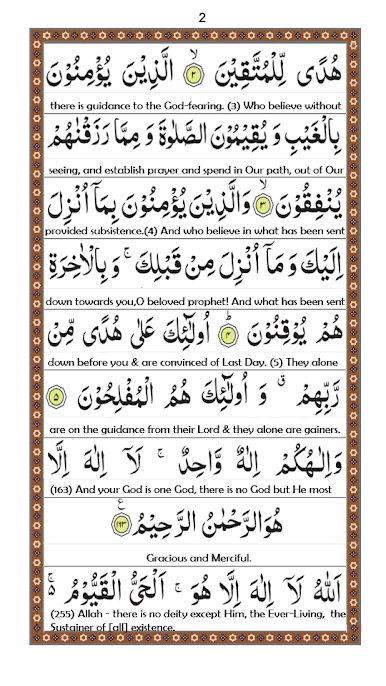 2
هُدًى لِّلْمُتَّقِيْنَ ۙ﴿۲﴾ الَّذِيْنَ يُؤْمِنُوْنَ
there is guidance to the God-fearing. (3) Who believe without
بِالْغَيْبِ وَ يُقِيْمُوْنَ الصَّلٰوةَ وَ مِمَّا رَزَقْنٰهُمْ
seeing, and establish prayer and spend in Our path, out of Our
يُنْفِقُوْنَ ۙ﴿۳﴾ وَالَّذِيْنَ يُؤْمِنُوْنَ بِمَاۤ اُنْزِلَ
provided subsistence.(4) And who believe in what has been sent
اِلَيْكَ وَ مَاۤ اُنْزِلَ مِنْ قَبْلِكَ ۚ وَ بِالْاٰخِرَةِ
down towards you,O beloved prophet! And what has been sent
هُمْ يُوْقِنُوْنَ ؕ﴿۴﴾ اُولٰٓئِكَ عَلٰى هُدًى مِّنْ
down before you & are convinced of Last Day. (5) They alone
رَّبِّهِمْ ۗ وَ اُولٰٓئِكَ هُمُ الْمُفْلِحُوْنَ ﴿۵﴾
are on the guidance from their Lord & they alone are gainers.
وَاِلٰـهُكُمْ اِلٰهٌ وَّاحِدٌ ۚ لَاۤ اِلٰهَ اِلَّا
(163) And your God is one God, there is no God but He most
هُوَالرَّحْمٰنُ الرَّحِيْمُ ﴿۱۶۳﴾
Gracious and Merciful.
اَللّٰهُ لَاۤ اِلٰهَ اِلَّا هُوَ ۚ اَلْحَىُّ الْقَيُّوْمُ ۚ۵
(255) Allah - there is no deity except Him, the Ever-Living, the
Sustainer of [all] existence.